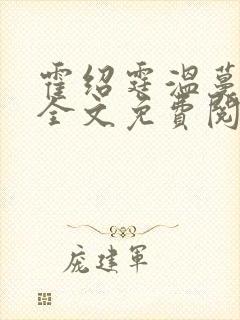 霍绍霆温蔓
全文免费阅
庞建军